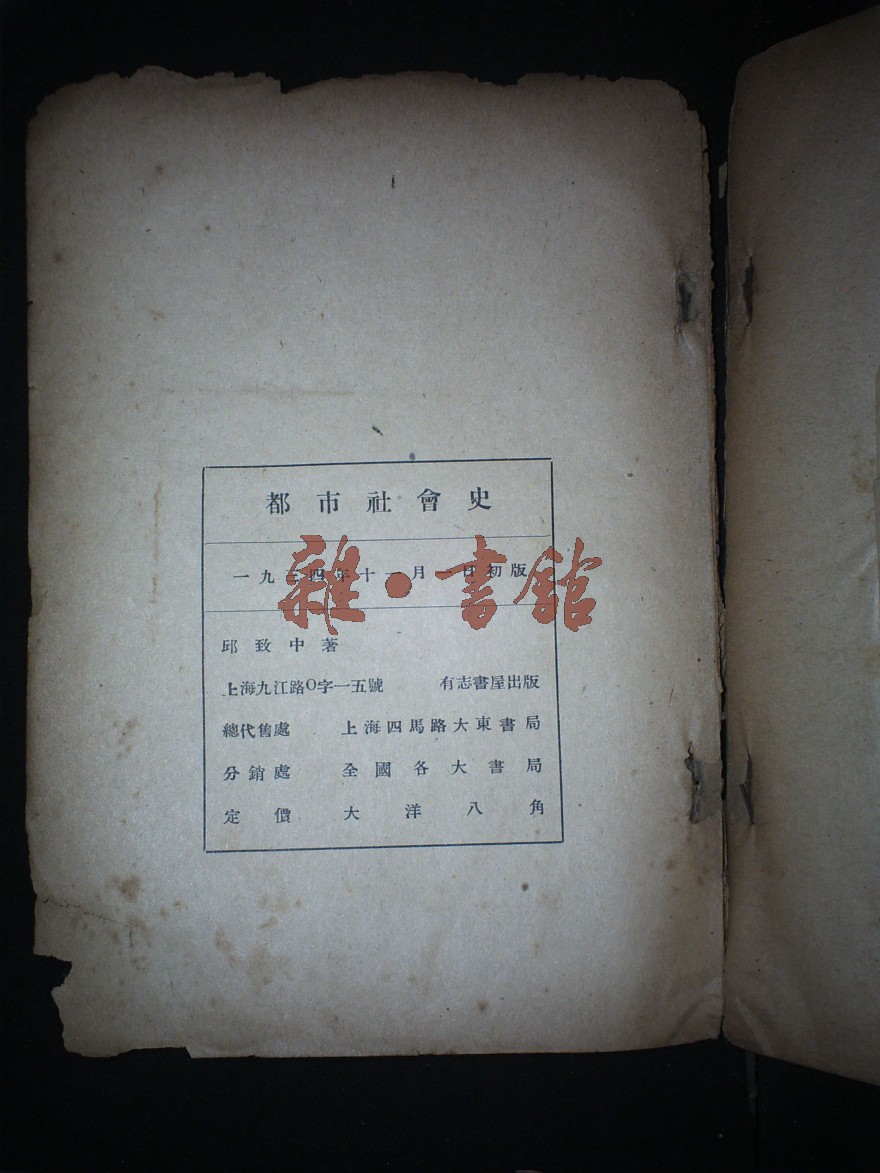 都市社會史
一九三四年十一月一日初版
雜·書館
邱致中著
上海九江路O字一五號 有志書屋出版
總代售處 上海四馬路大東書局
分銷處 全國各大書局
定價 大洋八角